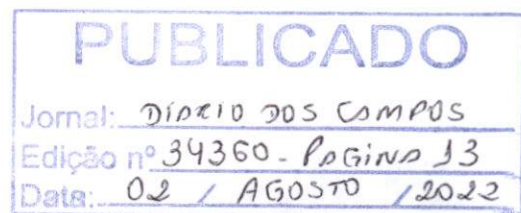 PUBLICADO
Jornal: DIÁRIO DOS CAMPOS
Edição nº 34360 - PAGINA 13
Data: 02 / AGOSTO / 2022